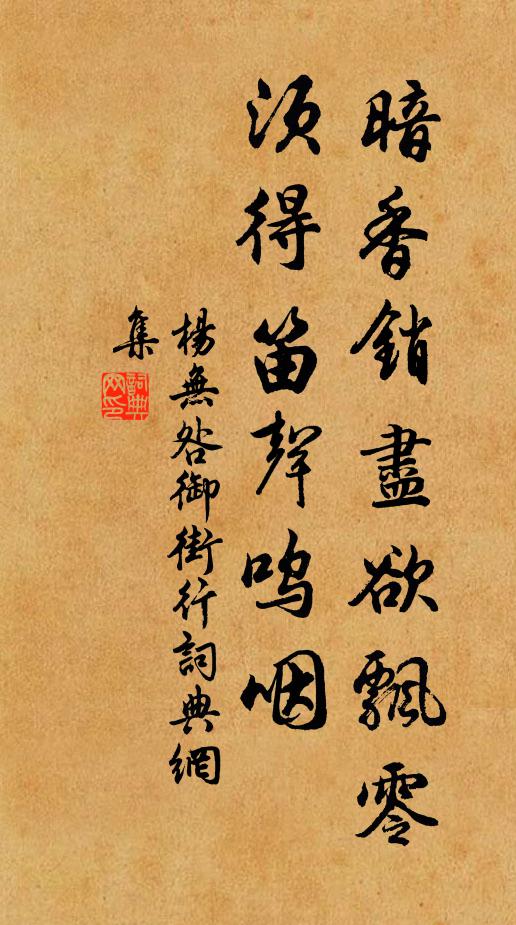 暗香銷盡欲飄零
須得笛聲嗚咽
楊無咎御街行詞典網
集
詞典網印